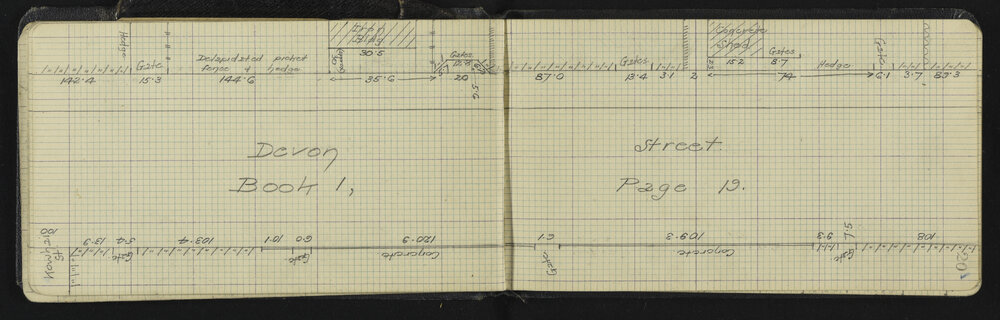 Hedge
Iron
Bldg
30.5
Gate
Dilapidated picket
fence & hedge
142.4 15.3 144.6 35.6
Gates
12.8
20
5.6
Concrete
Shed
15.2
Gates
8.7
Gates
Hedge
Gate
87.0 13.4 3.1 2 74 6.1 3.7 83.3
Devon Street
Book 1, Page 19.
100
13.9 3.4 103.4 10.1 6.0 120.9
Gate Gate Concrete
6.1 109.3 9.3 7.5 108
Gate Concrete Gate
20